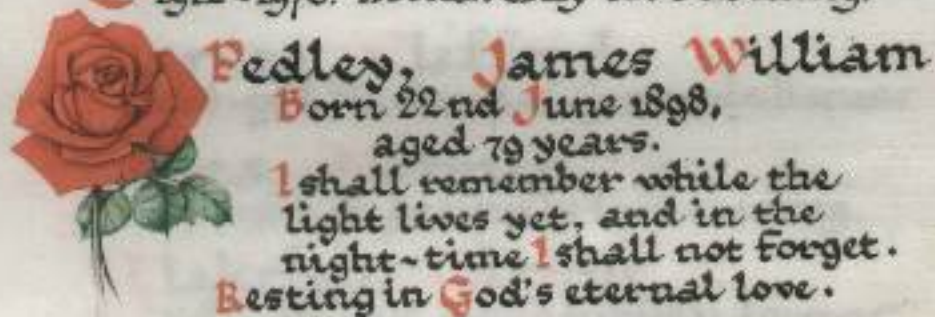 Pedley, James William
Born 22nd June 1898,
aged 79 years.
I shall remember while the
light lives yet, and in the
night-time I shall not forget.
Resting in God's eternal love.